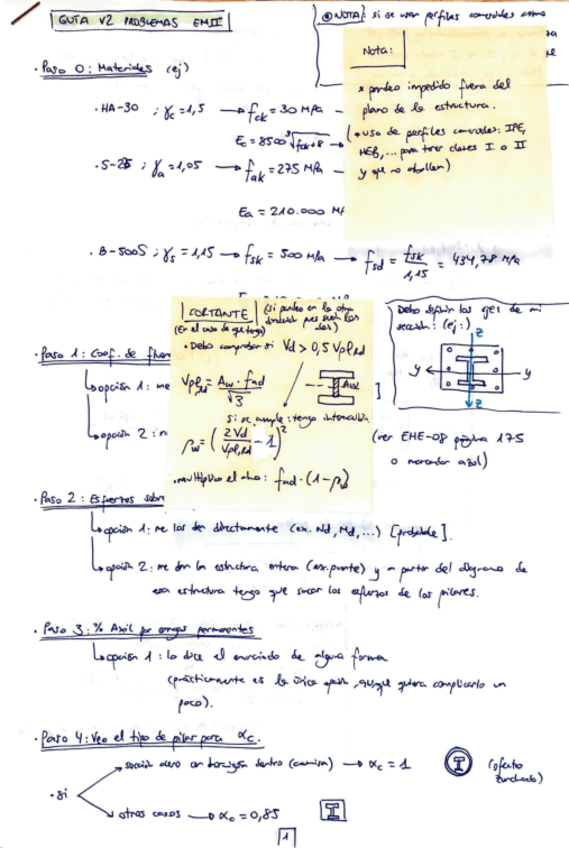 GUÍA V2 PROBLEMAS EMII
⊛ NOTA: si se usan perfiles comerciales como
Nota:
* pandeo impedido fuera del
plano de la estructura.
* uso de perfiles comerciales: IPE,
HEB, ... para tener clases I o II
y que no abollen)
· Paso 0: Materiales (ej)
· HA-30 ; γc = 1,5 → fck = 30 MPa
Ec = 8500 ∛fck+8
· S-275 ; γa = 1,05 → fak = 275 MPa
Ea = 210.000 M
· B-500S ; γs = 1,15 → fsk = 500 MPa → fsd = fsk/1,15 = 434,78 MPa
CORTANTE (si pandeo en la otra
dirección
(En el caso de que tenga)
· Debo comprobar si Vd > 0,5 Vpl,Rd
Vpl,Rd = Aw · fad / √3
si se cumple: tengo interacción
ρw = (2Vd/Vpl,Rd - 1)²
· multiplico el alma: fad · (1-ρw)
Debo definir los ejes de mi
sección: (ej:)
z
y
y
z
· Paso 1: Coef. de fluen
opción 1: me
]
opción 2:
(ver EHE-08 página 175
o marcador azul)
· Paso 2: Esfuerzos sobre
opción 1: me los dan directamente (ex. Nd, Md, ...) [probable].
opción 2: me dan la estructura entera (ex. puente) y a partir del diagrama de
esa estructura tengo que sacar los esfuerzos de los pilares.
· Paso 3: % Axil por cargas permanentes
opción 1: lo dice el enunciado de alguna forma
(prácticamente es la única opción, aunque quiera complicarlo un
poco).
· Paso 4: Veo el tipo de pilar para αc.
· si
sección acero con hormigón dentro (camisa) → αc = 1
(efecto
zunchado)
otros casos → αc = 0,85
1